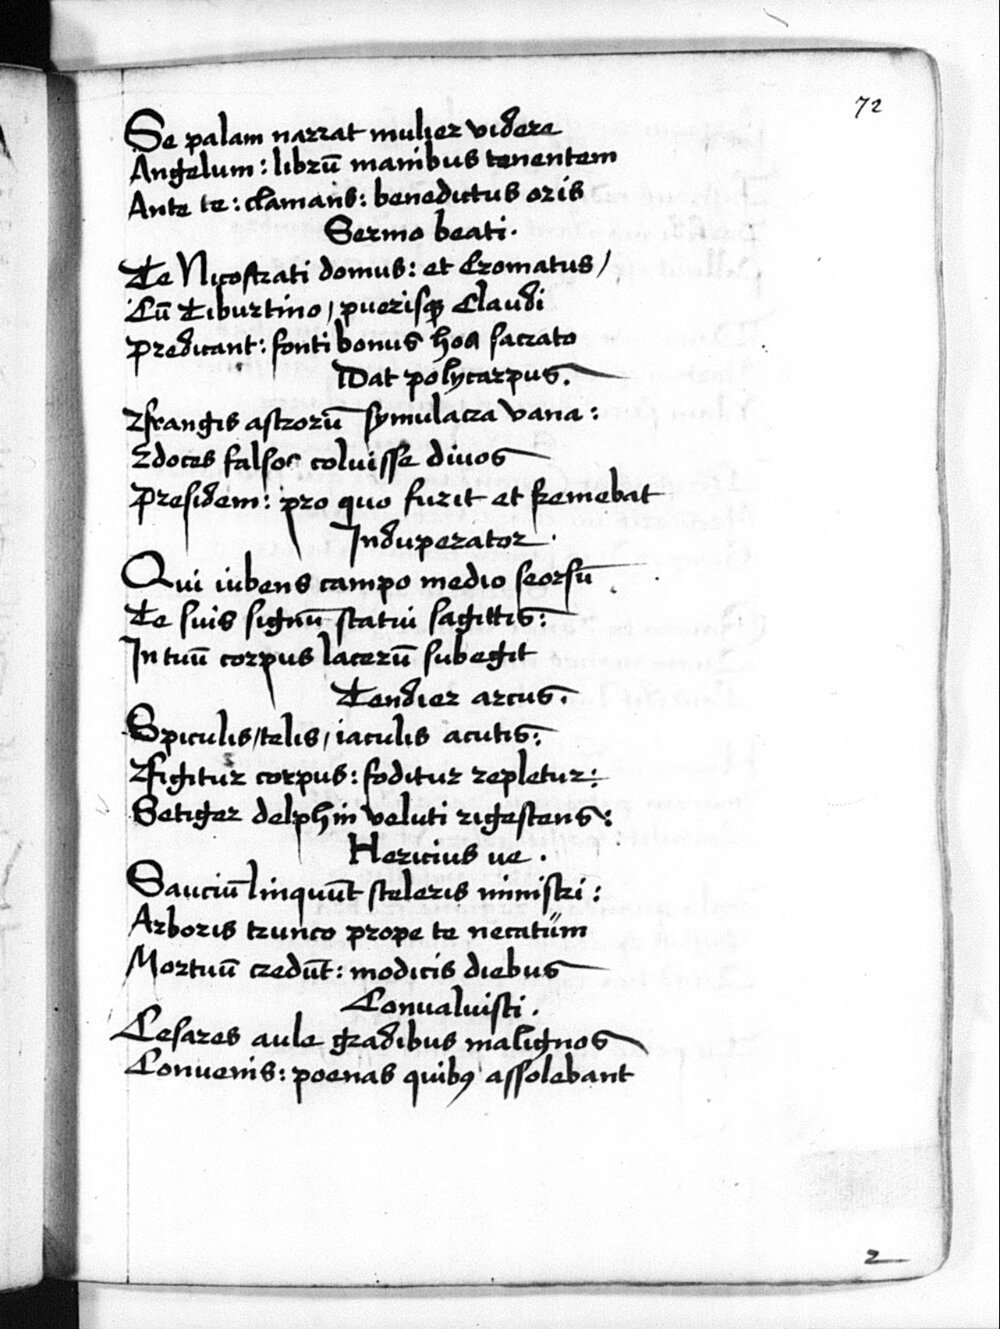 72
Se palam narrat mulier videre
Angelum: librū manibus tenentem
Ante te: clamans: benedictus oris
Sermo beati.
Te Nicostrati domus: et Cromatus /
Cū Tiburtino / puerisqꝫ Claudi
Predicant: fonti bonus hos sacrato
Dat polycarpus.
Effrangis astrorū symulacra vana:
Edoces falsos coluisse divos
Presidem: pro quo furit et fremebat
Induperator.
Qui iubens campo medio seorsū
Te suis signū statui sagittis:
In tuū corpus lacerū subegit
Tendier arcus.
Spiculis / telis / iaculis acutis:
Figitur corpus: foditur repletur:
Setiger delphin veluti rigestans:
Hericius ve.
Sauciū linquūt sceleris ministri:
Arboris trunco prope te necatūm
Mortuū credūt: modicis diebus
Convaluisti.
Cesares aule gradibus malignos
Convenis: poenas quibꝰ assolebant
2